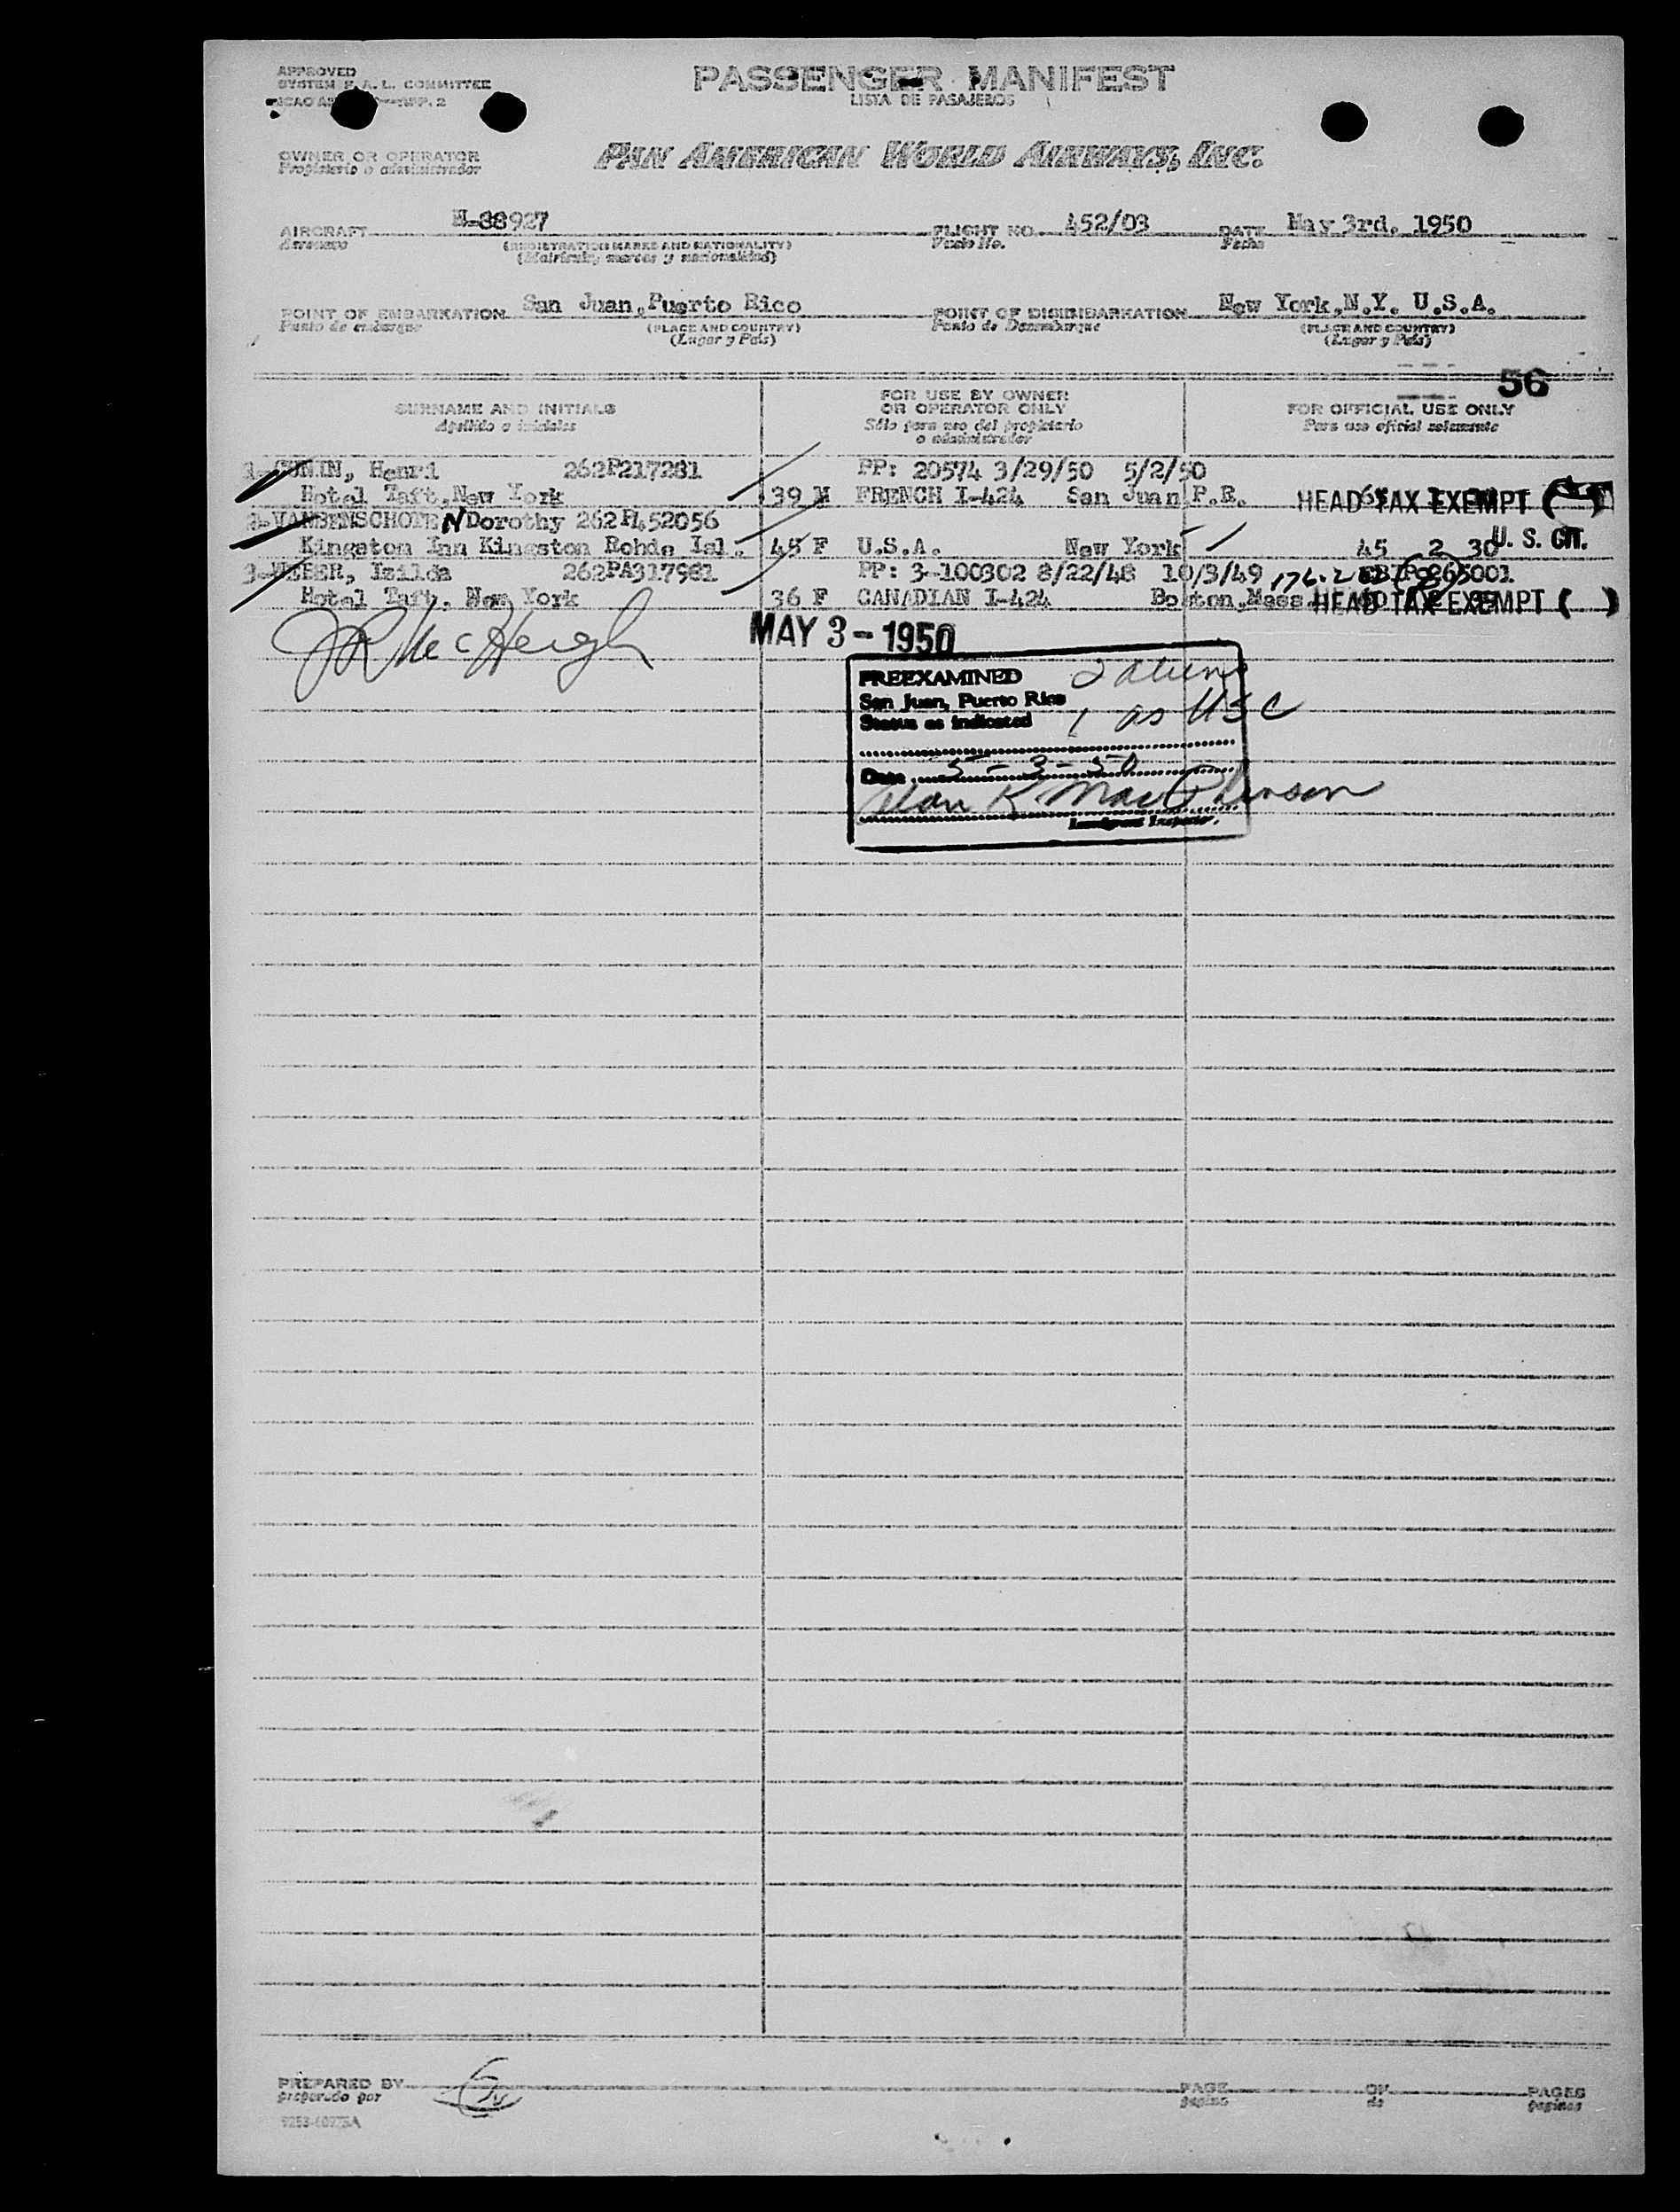 APPROVED
SYSTEM F.A.L. COMMITTEE
PASSENGER MANIFEST
LISTA DE PASAJEROS
OWNER OR OPERATOR
Propietario o administrador
PAN AMERICAN WORLD AIRWAYS, INC.
AIRCRAFT N-88927 FLIGHT NO. 452/03 DATE May 3rd. 1950
Aeronave (REGISTRATION MARKS AND NATIONALITY) Vuelo No. Fecha
(Matrícula, marcas y nacionalidad)
POINT OF EMBARKATION San Juan, Puerto Rico POINT OF DISEMBARKATION New York, N.Y. U.S.A.
Punto de embarque (PLACE AND COUNTRY) Punto de Desembarque (PLACE AND COUNTRY)
(Lugar y País) (Lugar y País)
56
SURNAME AND INITIALS FOR USE BY OWNER OR OPERATOR ONLY FOR OFFICIAL USE ONLY
Apellido e iniciales Sólo para uso del propietario o administrador Para uso oficial solamente
Henri 262P217281 PP: 20574 3/29/50 5/2/50
Hotel Taft, New York 39 M FRENCH I-424 San Juan P.R. HEAD TAX EXEMPT
2-VANBENSCHOTEN Dorothy 262P452056
Kingston Inn Kingston Rohde Isl. 45 F U.S.A. New York 45 2 30 U. S. CIT.
3-WEBER, Izilda 262PA317981 PP: 3-100302 8/22/48 10/3/49
Hotel Taft, New York 36 F CANADIAN I-424 Boston, Mass HEAD TAX EXEMPT ( )
MAY 3 - 1950
PREEXAMINED 2 aliens
San Juan, Puerto Rico
Status as indicated 1 as USC
Date 5-3-50
Immigrant Inspector.
PREPARED BY PAGE OF PAGES
preparado por página de páginas